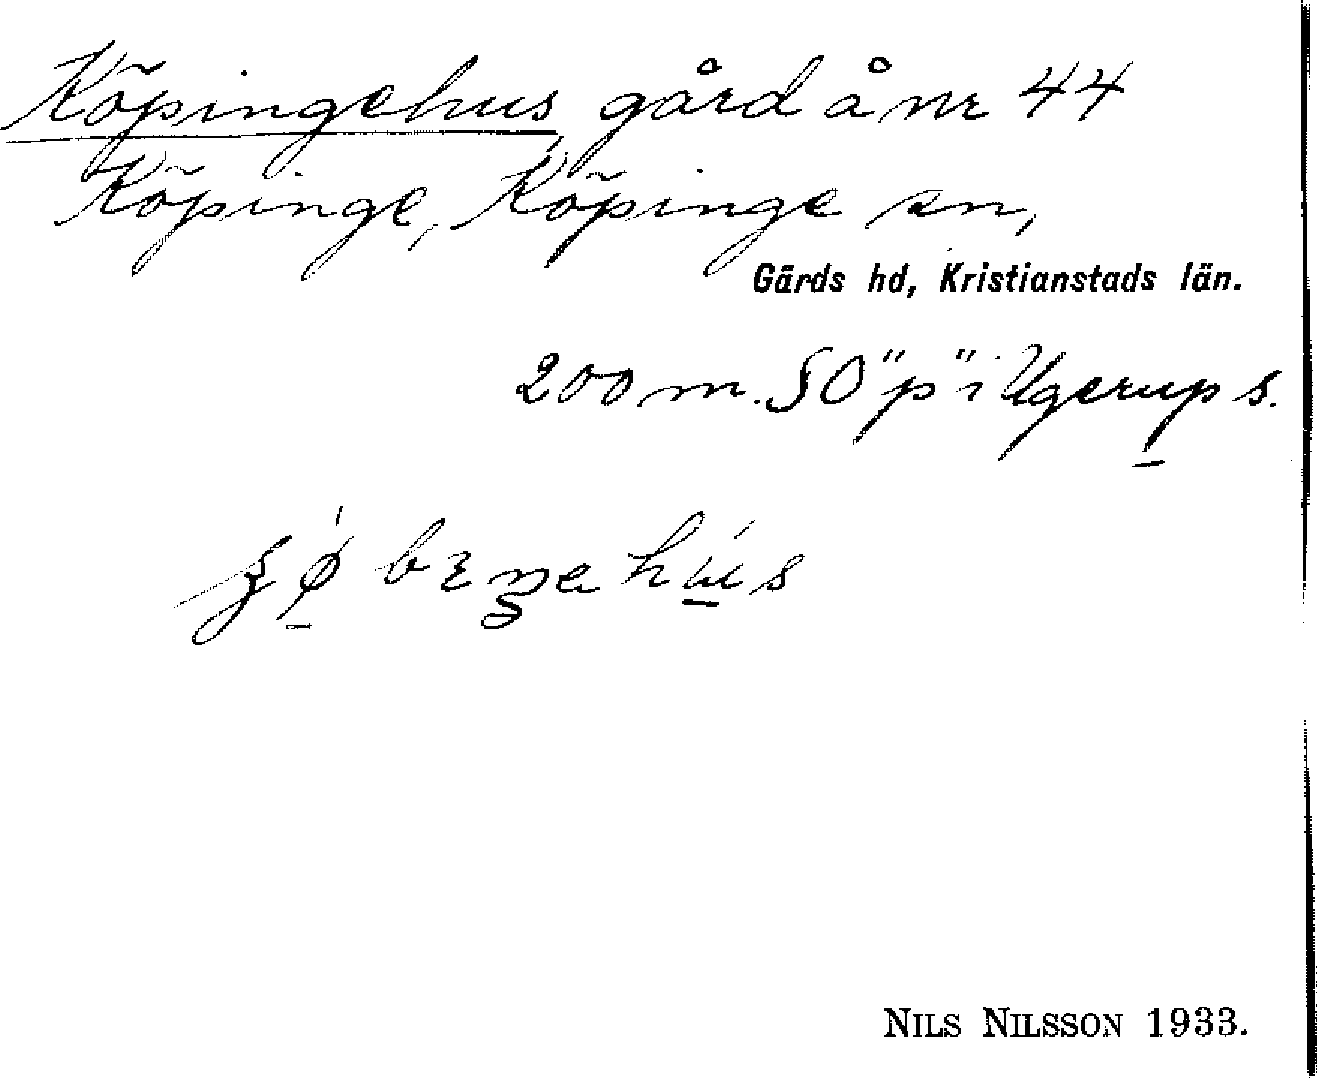 Köpingehus, gård å nr 44
Köpinge, Köpinge sn,
Gärds hd, Kristianstads län.
200 m. SO "p" i Ugerup s.
NILS NILSSON 1933.